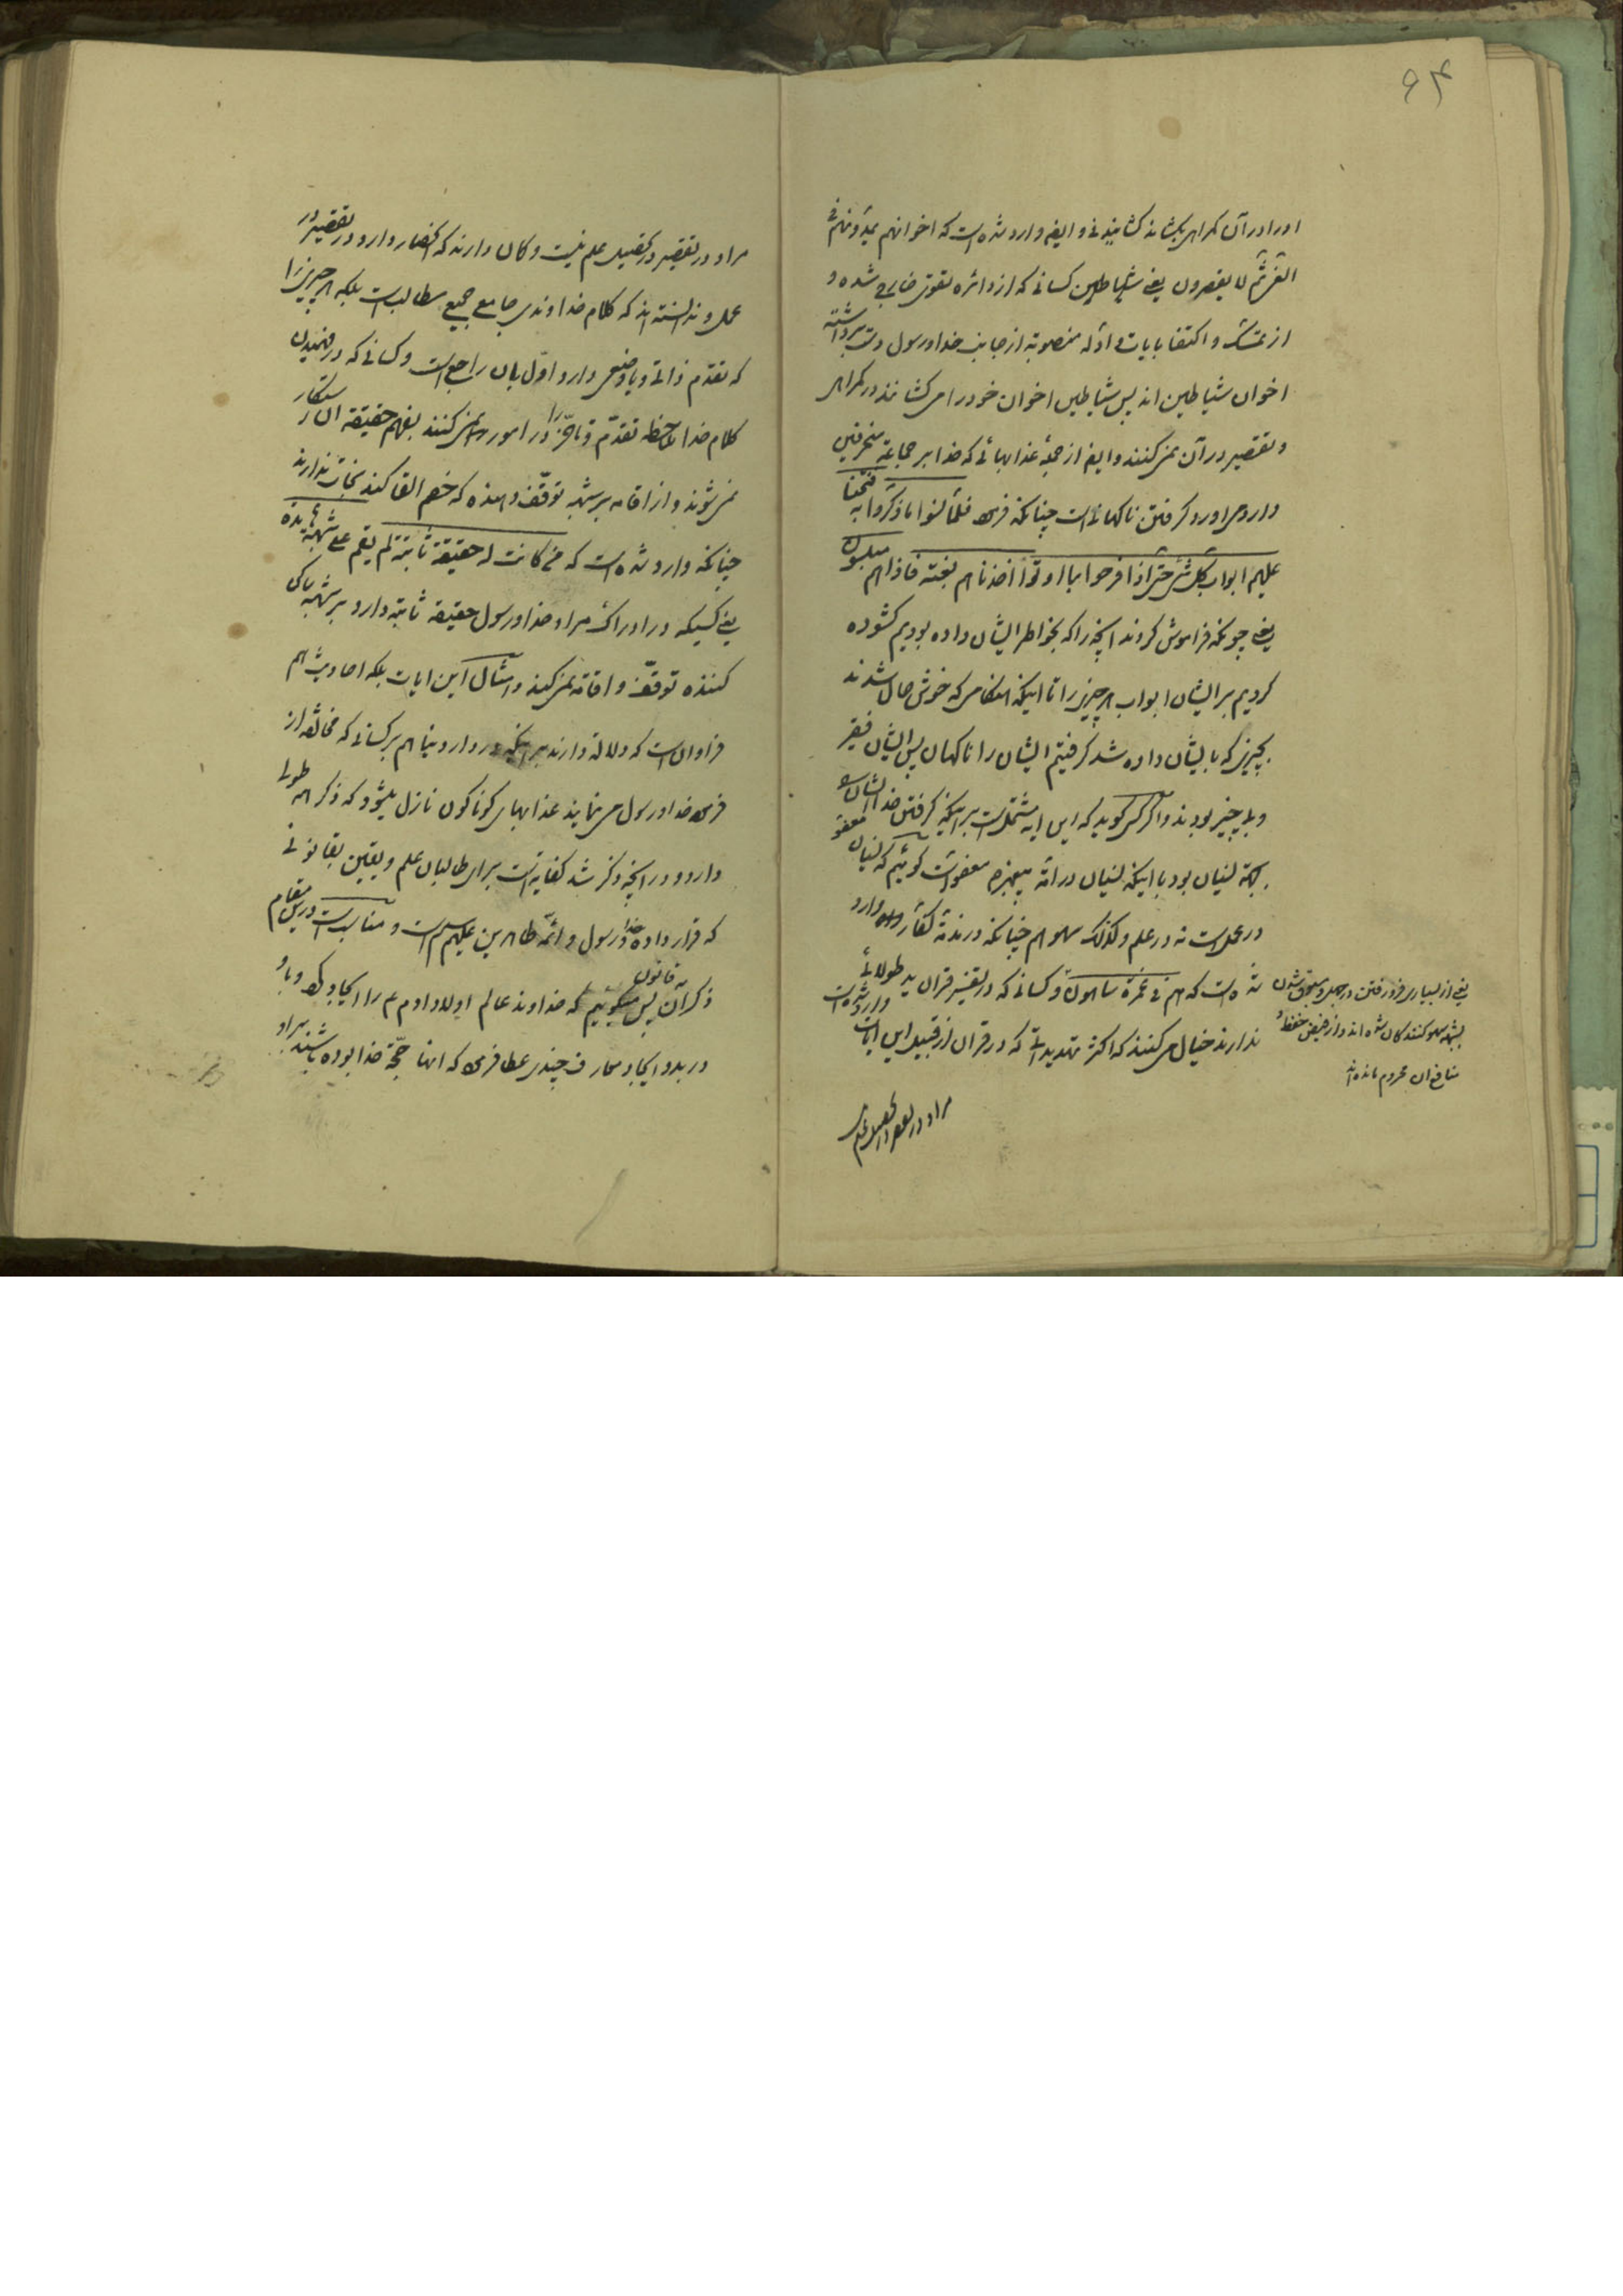 ۹۴
او را در آن گمراهی بکشاند کشانیدنی و ایضا وارد شده است که اخوانهم یمدونهم فی
الغی ثم لا یقصرون یعنی شیاطین کسانی که از دائره تقوی خارج شده و
از تمسک و اکتفا بایات و ادله منصوبه از جانب خدا و رسول دست برداشته
اخوان شیاطین اند پس شیاطین اخوان خود را می کشانند در گمراهی
و تقصیر در آن نمی کنند و ایضا از جمله عذابهائی که خدا بر جماعة منحرفین
وارد می اورد گرفتن ناگهانی است چنانکه فرموده فلما نسوا ما ذکروا به فتحنا
علیهم ابواب کل شئ حتی اذا فرحوا بما اوتوا اخذناهم بغتة فاذا هم مبلسون
یعنی چونکه فراموش کردند انچه را که بخواطر ایشان داده بودیم گشوده
کردیم بر ایشان ابواب هر چیزی را تا اینکه هنگامی که خوش حال شدند
بچیزی که بایشان داده شد گرفتیم ایشان را ناگهان پس ایشان فقیر
و بی چیز بودند و اگر کسی گوید که این ایه مشتمل است بر اینکه گرفتن خدا ایشان را
بجهة نسیان بود با اینکه نسیان در امة پیغمبر معفو است گوئیم که نسیان معفو
در عمل است نه در علم و کذلک سهو هم چنانکه در مذمة کفار وارد
شده است که هم فی غمرة ساهون و کسانی که در تفسیر قران ید طولائی
ندارند خیال می کنند که اکثر تهدیداتی که در قران از قبیل این ایات وارد شده است
یعنی از بسیاری فرو رفتن در جهل و
سهو کنندگان شده اند و از فیض حفظ
منافع ان محروم مانده اند
مراد در تقصیر در تحصیل علم
مراد در تقصیر در تحصیل علم نیست و گمان دارند که انحصار دارد در تقصیر در
عمل و ندانسته اند که کلام خداوندی جامع جمیع مطالب است بلکه هر چیزی را
که تقدم ذاتی و یا وضعی دارد اول بان راجع است و کسانی که در فهمیدن
کلام خدا ملاحظه تقدم و تاخر را در امور نمی کنند بفهم حقیقة ان رستگار
نمی شوند و از اقامه بر شبهه توقف دهنده که خصم القا کند نجات ندارند
چنانکه وارد شده است که من کانت له حقیقة ثابتة لم یقم علی شبهة هامدة
یعنی کسیکه در ادراک مراد خدا و رسول حقیقة ثابته دارد بر شبهه ساکن
کننده توقف و اقامه نمی کند و امثال این ایات بلکه احادیث هم
فراوان است که دلالة دارند بر اینکه در دار دنیا هم بر کسانی که مخالفة از
فرموده خدا و رسول می نمایند عذابهای گوناگون نازل میشود که ذکر همه طولی
دارد و در انچه ذکر شد کفایة است برای طالبان علم و یقین بقانونی
که قرار داده خدا و رسول و ائمه طاهرین علیهم السلام است و مناسب است در این مقام
ذکر ان قانون پس میگوئیم که خداوند عالم اولاد ادم ع را ایجاد کرد و با او
در بدو ایجاد معارف چندی عطا فرموده که انها حجة خدا بوده باشند بر او